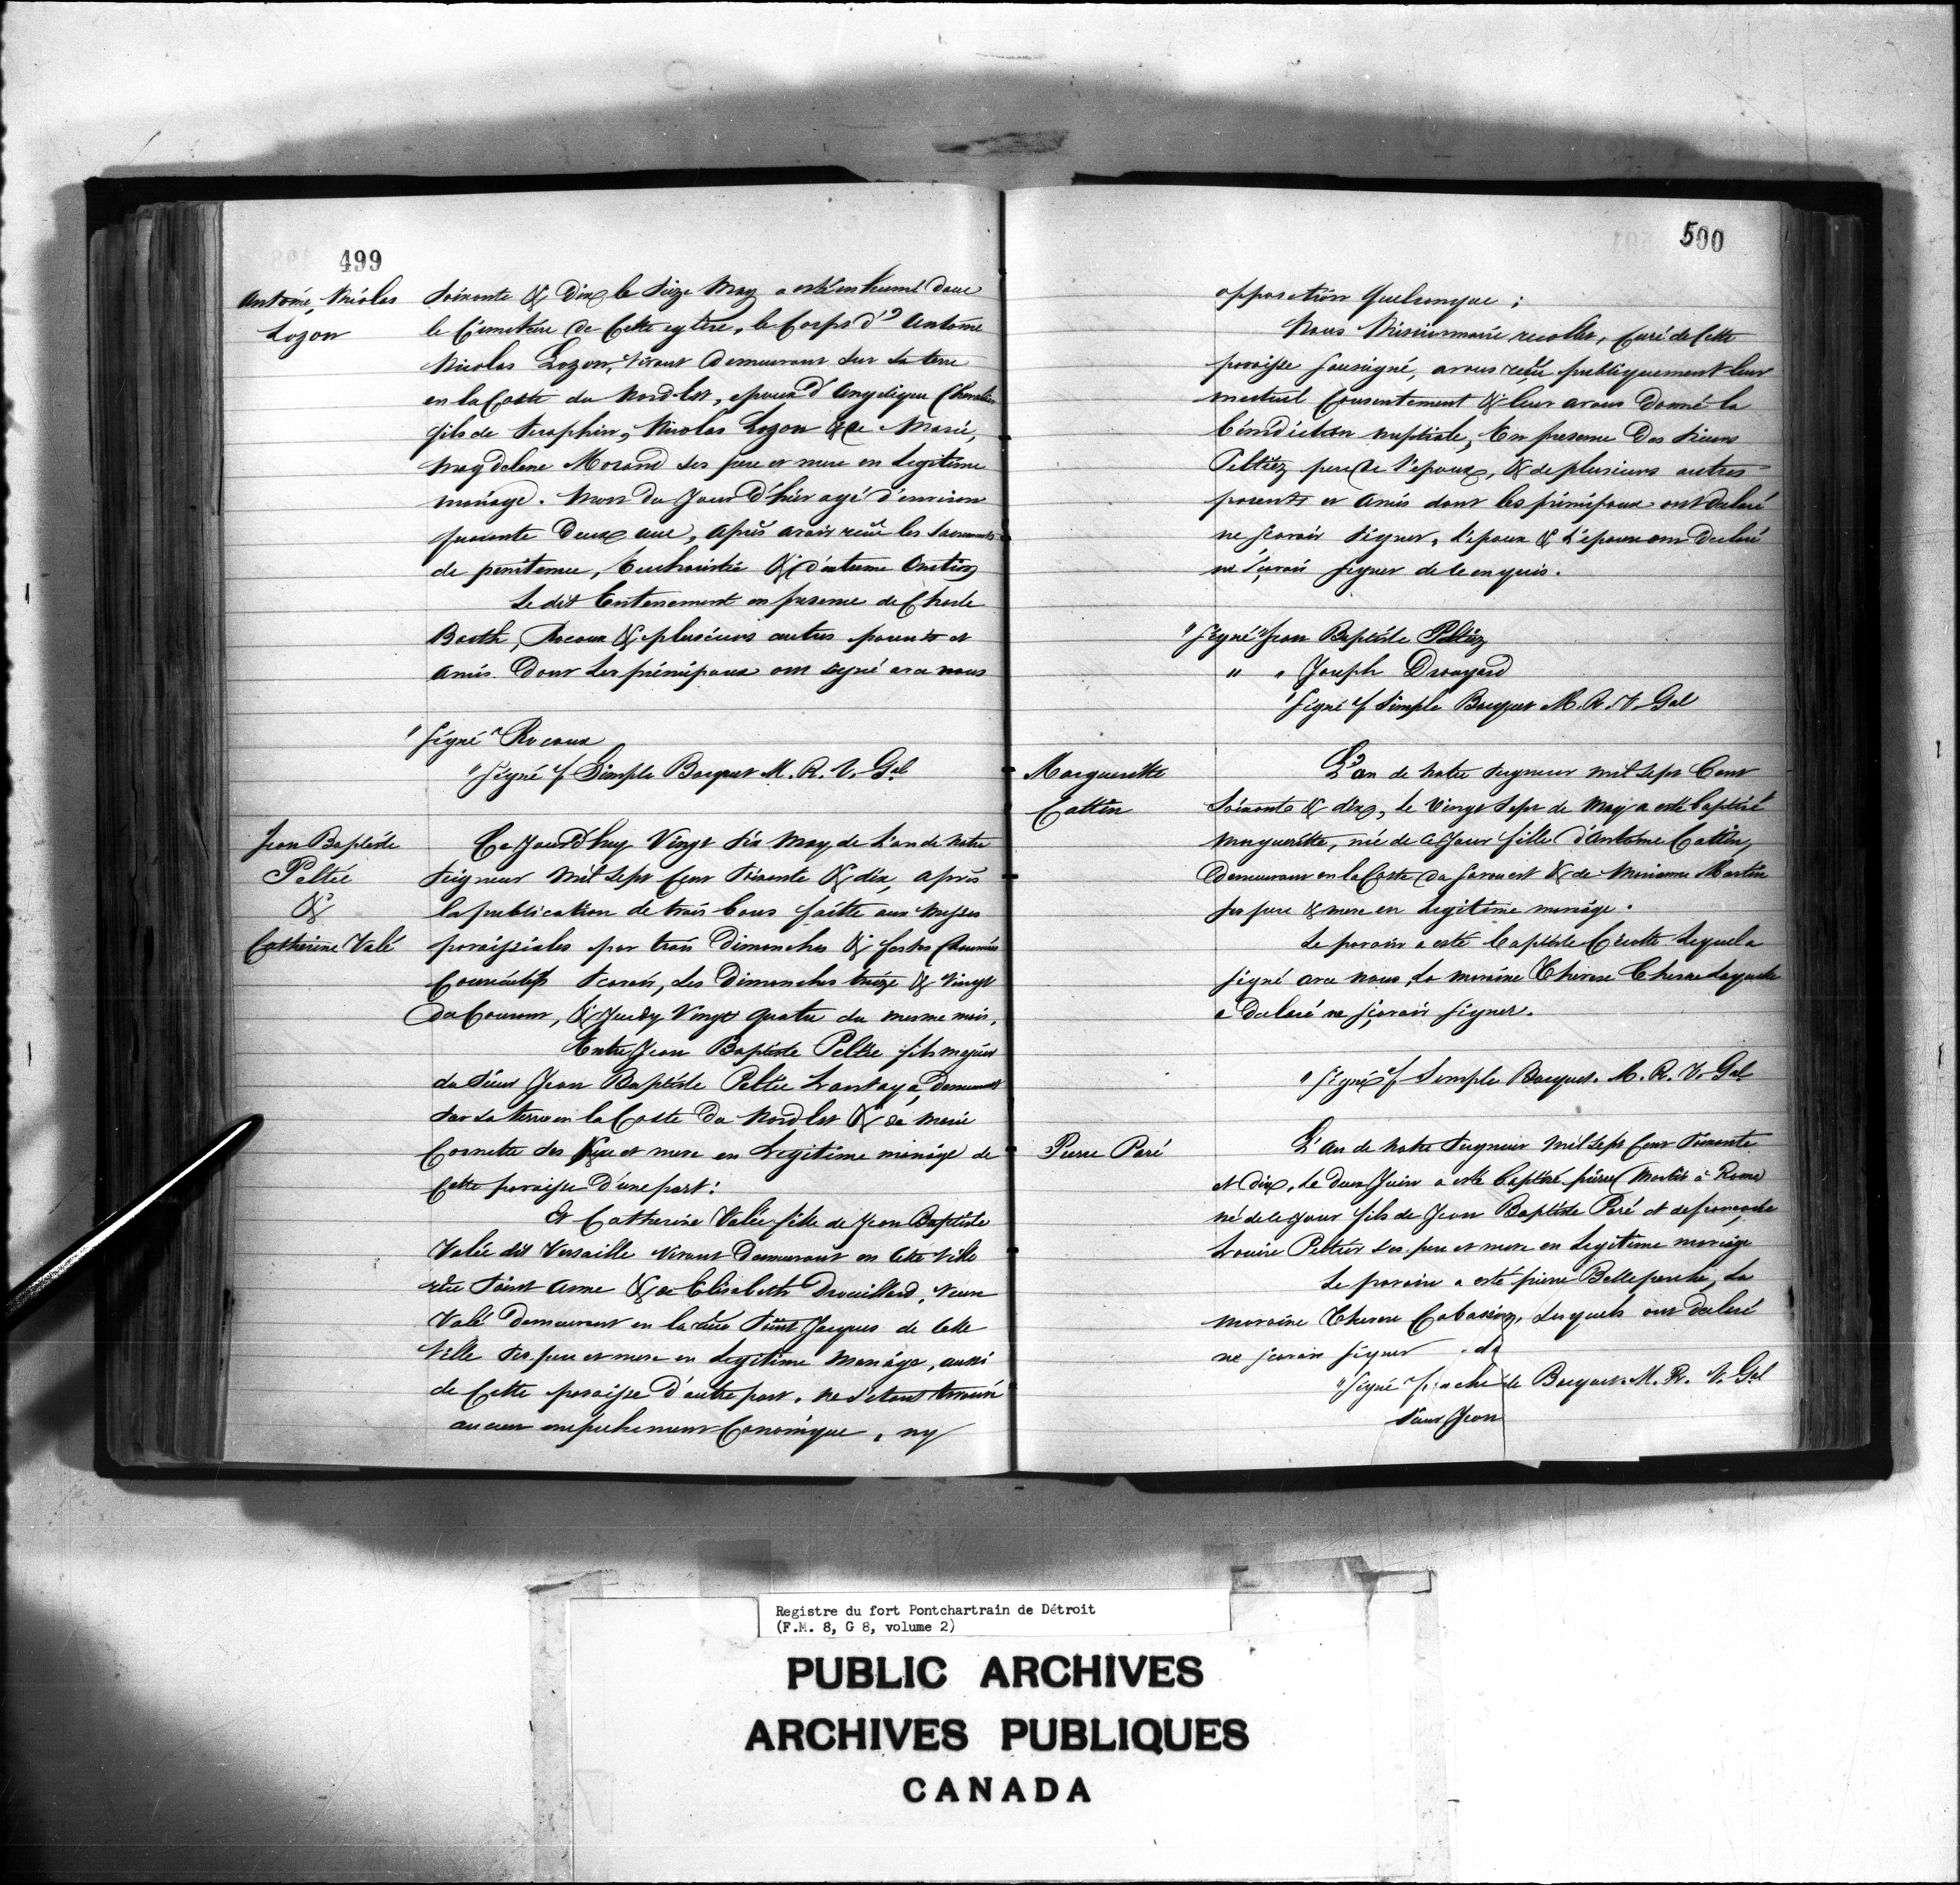 499
Antoine, Nicolas
Lozon
Soixante & dix le seize May a esté enhumé dans
le Cimetiere de Cette eglise, le Corps d' Antoine
Nicolas Lozon, vivant Demeurant sur sa terre
en la Coste du Nord-Est, epoux d'Angelique Chevalier
fils de Seraphin, Nicolas Lozon & de Marie,
Magdelene Morand ses pere et mere en Legitime
mariage. Mort du Jour D'hier agé d'environ
quarante Deux ans, Après avoir reçu les Sacrements
de penitence, Eucharistie & d'extreme Onction
Le dit Enterrement en presence de Charle
Barth, Rocoux & plusieurs autres parents et
Amis Dont Les principaux ont signé avec nous
"Signé" Rocoux
"Signé f. Simple Bocquet M. R. V. Gal
Jean Baptiste
Peltié
&
Catherine Valé
Ce Jourd'huy Vingt Six May de L'an de Notre
Seigneur Mil Sept Cent Soixante & dix, après
la publication de trois bans faitte aux Messes
paroissiales par trois Dimanches & festes Chaumées
Consécutifs Scavoir, Les Dimanches treize & Vingt
du Courant, & Jeudy Vingt quatre du mesme mois.
Entre Jean Baptiste Peltié fils majeur
du Sieur Jean Baptiste Peltié Lantaya, Demeurant
Sur sa terre en la Coste du Nord Est & de Marie
Cornette ses pere et mere en Legitime mariage de
Cette paroisse D'une part:
Et Catherine Valée fille de Jean Baptiste
Valée dit Versaille vivant Demeurant en Cette Ville
rüe Saint Anne & de Elisabeth Drouillard, veuve
Valé Demeurant en la rüe Saint Jacques de Cette
Ville Ses pere et mere en Legitime Mariage, aussi
de Cette paroisse D'autre part, ne s'etant trouvé
aucun empechement Canonique, ny
500
opposition quelconque;
Nous Missionnaire recollet, Curé de Cette
paroisse Soussigné, avons reçu publiquement leur
mutuel Consentement & leur avons Donné la
bénédiction nuptiale, En presence Des Sieurs
Peltiéz pere de l'epoux, & de plusieurs autres
parents et Amis dont les principaux ont declaré
ne scavoir signer, L'epoux & L'epouse ont declaré
ne scavoir signer de ce enquis.
"Signé" Jean Baptiste Peltiéz
" " Joseph Drouyard
"Signé f. Simple Bocquet M. R. V. Gal
Marguerite
Cattin
L'an de Notre Seigneur mil sept Cent
Soixante & dix, Le Vingt Sept de May a esté baptisé
Marguerite, née de ce Jour fille d'Antoine Cattin,
Demeurant en la Coste du Sorouest & de Marianne Martin
Ses pere & mere en Legitime mariage.
Le parain a esté baptiste Cicotte Lequel a
signé avec nous, La maraine Therese Chesne Laquelle
a Declaré ne scavoir signer.
"Signé f. Simple Bocquet. M. R. V. Gal
Pierre Paré
L'An de Notre Seigneur Mil Sept Cent Soixante
et Dix, Le deux Juin a esté baptisé pierre (Martir à Rome)
né de ce Jour fils de Jean Baptiste Paré et de
Louise Peltier Ses pere et mere en Legitime mariage
Le parain a esté pierre Belleperche, La
maraine Therese Cabasiez, Lesquels ont declaré
ne scavoir signer . da
"Signé" ache de Bocquet. M. R. V. Gal
Sieur Jean
Registre du fort Pontchartrain de Détroit
(F.M. 8, G 8, volume 2)
PUBLIC ARCHIVES
ARCHIVES PUBLIQUES
CANADA